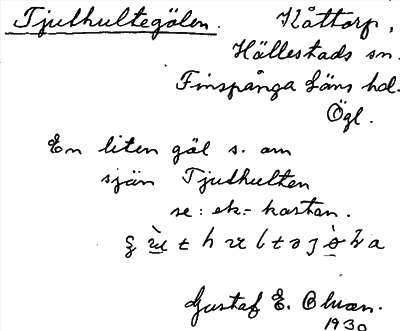 Tjuthultegölen. Kåttorp,
Hällestads sn.
Finspånga läns hd.
Ögl.
En liten göl s. om
sjön Tjuthulten
se: ek.- kartan.
Gustaf E.
1930